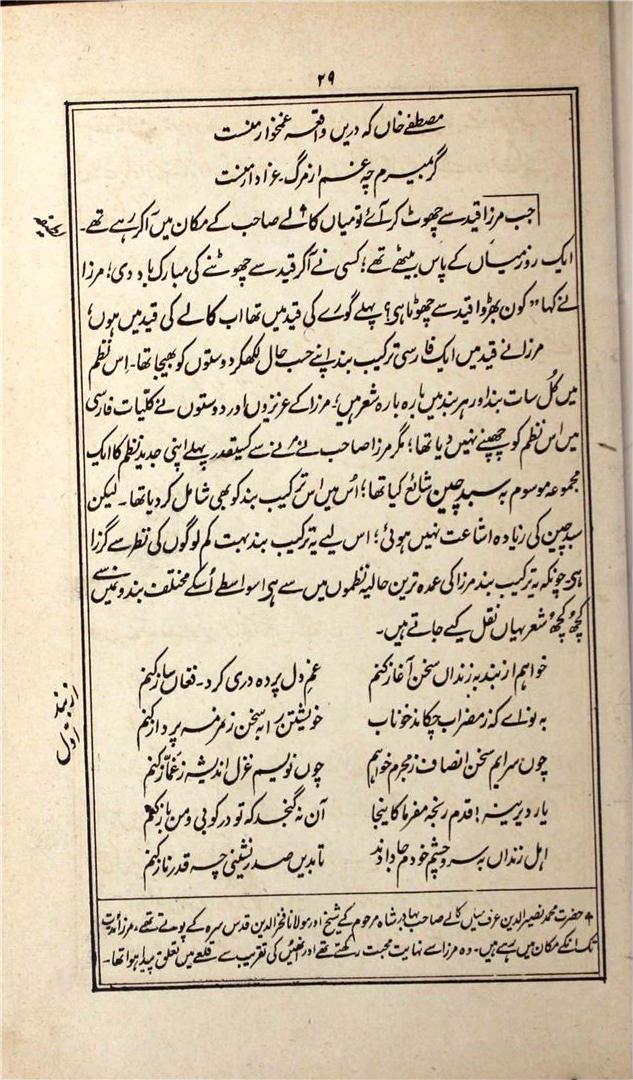 ۲۹
مصطفےٰ خاں کہ دریں واقعہ غمخوار منست
گر بمیرم چہ غم از مرگ۔ عزادار منست
جب مرزا قید سے چھوٹ کر آئے تو میاں کالے صاحب کے مکان میں آکر رہے تھے۔
لطیفہ
ایک روز میاں کے پاس بیٹھے تھے؛ کسی نے آکر قید سے چھوٹنے کی مبارکباد دی؛ مرزا
نے کہا "کون بھڑوا قید سے چھوٹا ہی؟ پہلے گورے کی قید میں تھا اب کالے کی قید میں ہوں؛
مرزا نے قید میں ایک فارسی ترکیب بند اپنے حسب حال لکھکر دوستوں کو بھیجا تھا۔ اِس نظم
میں کُل سات بند اور ہر بند میں بارہ بارہ شعر ہیں؛ مرزا کے عزیزوں اور دوستوں نے کلیات فارسی
میں اس نظم کو چھپنے نہیں دیا تھا؛ مگر مرزا صاحب نے مرنے سے کسیقدر پہلے اپنی جدید نظم کا ایک
مجموعہ موسوم بہ سبد چین شائع کیا تھا؛ اُس میں اس ترکیب بند کو بھی شامل کر دیا تھا۔ لیکن
سبد چین کی زیادہ اشاعت نہیں ہوئی؛ اس لیے یہ ترکیب بند بہت کم لوگوں کی نظر سے گزرا
ہی چونکہ یہ ترکیب بند مرزا کی عمدہ ترین حالیہ نظموں میں سے ہی اسواسطے اُسکے مختلف بندونمیں سے
کچھ کچھ شعر یہاں نقل کیے جاتے ہیں۔
از بند اول
خواہم از بند بہ زنداں سخن آغاز کنم
غم دل پردہ دری کرد۔ فغاں ساز کنم
بہ نواے کہ ز مضراب چکاند خوناب
خویشتن را بہ سخن زمزمہ پرداز کنم
چوں سرایم سخن انصاف ز مجرم خواہم
چوں نویسم غزل اندیشہ ز غماز کنم
یار دیرینہ! قدم رنجہ مفرما کاینجا
آن نہ گنجد کہ تو در کوبی و من باز کنم
اہل زنداں بہ سر و چشم خودم جا دادند
تا بدیں صدر نشینی چہ قدر ناز کنم
+ حضرت محمد نصیر الدین عرف میاں کالے صاحب بہادر شاہ مرحوم کے شیخ اور مولانا فخر الدین قدس سرہ کے پوتے تھے، مرزا مدت
تک انکے مکان میں رہے ہیں۔ وہ مرزا سے نہایت محبت رکھتے تھے اور انھیں کی تقریب سے قلعے میں تعلق پیدا ہوا تھا۔